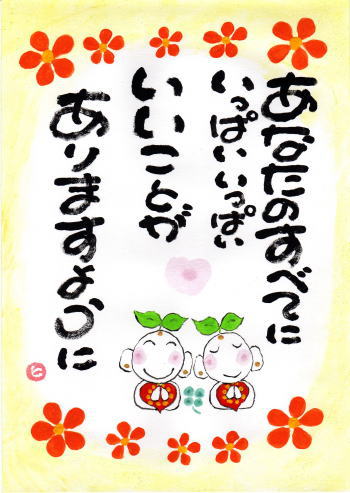 あなたのすべてに
いっぱいいっぱい
いいことが
ありますように